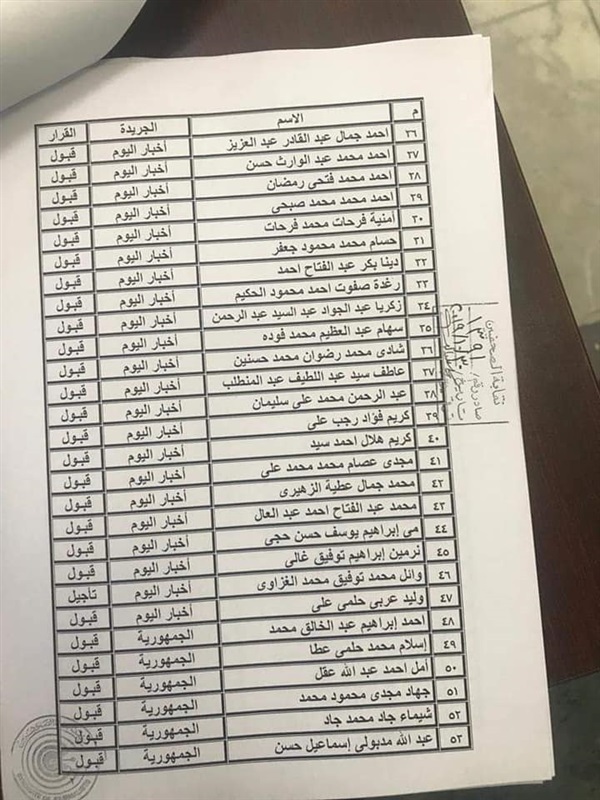 م الاسم الجريدة القرار
٢٦ احمد جمال عبد القادر عبد العزيز أخبار اليوم قبول
٢٧ احمد محمد عبد الوارث حسن أخبار اليوم قبول
٢٨ احمد محمد فتحى رمضان أخبار اليوم قبول
٢٩ احمد محمد محمد صبحى أخبار اليوم قبول
٣٠ أمنية فرحات محمد فرحات أخبار اليوم قبول
٣١ حسام محمد محمود جعفر أخبار اليوم قبول
٣٢ دينا بكر عبد الفتاح احمد أخبار اليوم قبول
٣٣ رغدة صفوت احمد محمود الحكيم أخبار اليوم قبول
٣٤ زكريا عبد الجواد عبد السيد عبد الرحمن أخبار اليوم قبول
٣٥ سهام عبد العظيم محمد فوده أخبار اليوم قبول
٣٦ شادى محمد رضوان محمد حسنين أخبار اليوم قبول
٣٧ عاطف سيد عبد اللطيف عبد المنطلب أخبار اليوم قبول
٣٨ عبد الرحمن محمد على سليمان أخبار اليوم قبول
٣٩ كريم فؤاد رجب على أخبار اليوم قبول
٤٠ كريم هلال احمد سيد أخبار اليوم قبول
٤١ مجدى عصام محمد محمد على أخبار اليوم قبول
٤٢ محمد جمال عطية الزهيرى أخبار اليوم قبول
٤٣ محمد عبد الفتاح احمد عبد العال أخبار اليوم قبول
٤٤ مى إبراهيم يوسف حسن حجى أخبار اليوم قبول
٤٥ نرمين إبراهيم توفيق غالى أخبار اليوم قبول
٤٦ وائل محمد توفيق محمد الغزاوى أخبار اليوم تأجيل
٤٧ وليد عربى حلمى على أخبار اليوم قبول
٤٨ احمد إبراهيم عبد الخالق محمد الجمهورية قبول
٤٩ إسلام محمد حلمى عطا الجمهورية قبول
٥٠ أمل احمد عبد الله عقل الجمهورية قبول
٥١ جهاد مجدى محمود محمد الجمهورية قبول
٥٢ شيماء جاد محمد جاد الجمهورية قبول
٥٣ عبد الله مدبولى إسماعيل حسن الجمهورية قبول
نقابة الصحفيين
صادر رقم / ١٣٩١